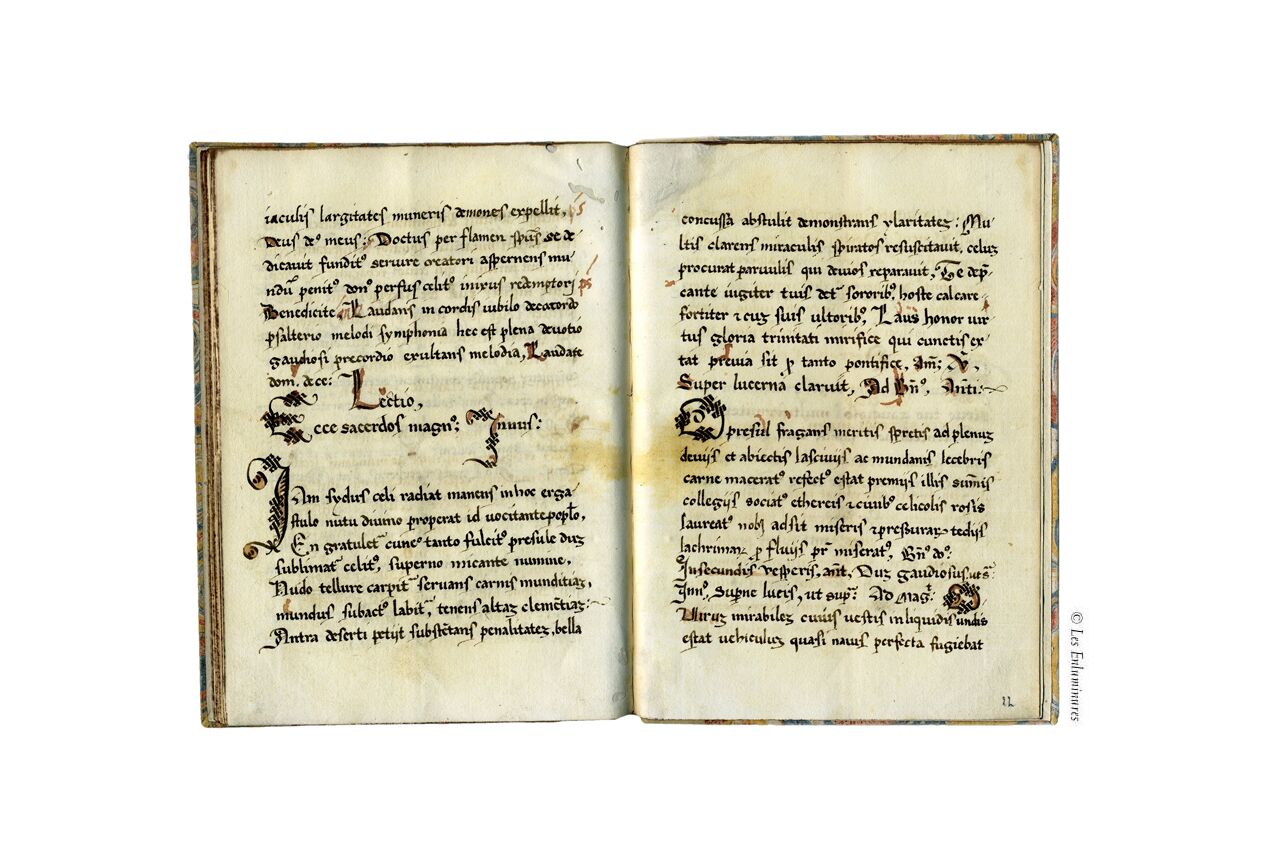 iaculis largitates muneris demones expellit, ps
Deus de⁹ meus: Doctus per flamen spũs se de
dicavit fundit⁹ servire creatori aspernens mu
ndũ penit⁹ don⁹ perfus⁹ celit⁹ inixus redemptori ps
Benedicite añ Laudans in cordis iubilo decacordo
psalterio melodi symphonia hec est plena devotio
gaudiosi precordio exultans melodia, Laudate
dom. de ce:
Lectio,
Ecce sacerdos magn⁹: Ynnus:
Iam sydus celi radiat manens in hoc erga
stulo nutu divino properat id vocitante poplo,
En gratulet cunc⁹ tanto fulcit⁹ presule duz
sublimat celit⁹, superno micante numine,
Nudo tellure carpit servans carnis munditiaz,
mundus subact⁹ labit, tenens altaz clemẽtiaz:
Antra deserti petijt substẽtans penalitatez, bella
concussa abstulit demonstrans ylaritatez: Mu
ltis clarens miraculis spiratos resuscitavit, celuz
procurat parvulis qui devios reparavit, Te dep
cante iugiter tuis det sororib⁹, hoste calcare
fortiter et cuz suis ultorib⁹, Laus honor vir
tus gloria trinitati mirifice qui cunctis ex
tat previa sit p tanto pontifice, Am: V,
Super lucerna claruit, Ad Bñ⁹, Anti:
O presul fragans meritis spretis ad plenuz
devijs et abiectis lascivijs ac mundanis lecebris
carne macerat⁹ refect⁹ estat premijs illis sum̃is
collegijs sociat⁹ ethereis et civib⁹ celicolis rosis
laureat⁹ nob adsit miseris et pressuraz tedijs
lachrimaz p fluvijs pr miserat⁹, Bñ⁹ do⁹:
In secundis vesperis, ant, Duz gaudiosus. uts
Ynn⁹, Superne lucis, ut sup: Ad Mag: O
Viruz mirabilez cuius vestis in liquidis undis
estat vehiculuz quasi navis perfecta fugiebat
22
© Les Enluminures